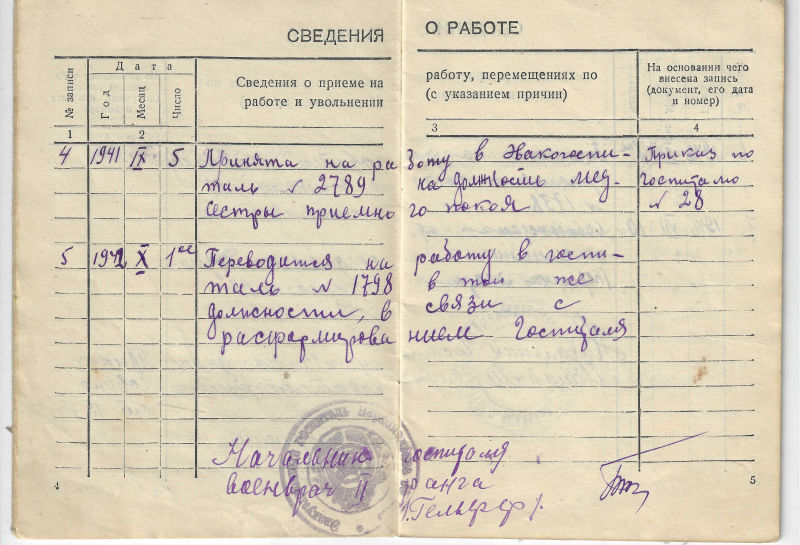 СВЕДЕНИЯ О РАБОТЕ
№ записи
Дата
Год
Месяц
Число
Сведения о приеме на работу, перемещениях по
работе и увольнении (с указанием причин)
На основании чего
внесена запись
(документ, его дата
и номер)
1 2 3 4
4 1941 IX 5 Принята на работу в Эвакогоспи- Приказ по
таль № 2789 на должность мед- госпиталю
сестры приемного покоя № 28
5 1942 X 1ое Переводится на работу в госпи-
таль № 1798 в той же
должности, в связи с
расформированием Госпиталя
Начальник госпиталя
военврач II ранга
4 5